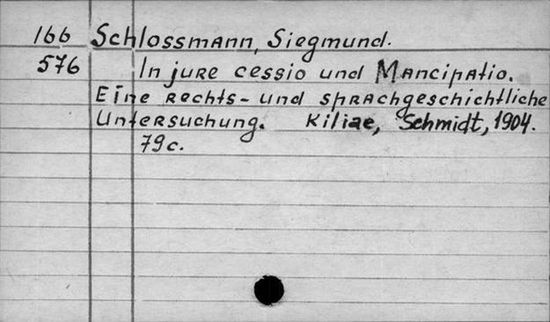 166 Schlossmann, Siegmund.
576 In jure cessio und Mancipatio.
Eine rechts- und sprachgeschichtliche
Untersuchung. Kiliae, Schmidt, 1904.
79 c.